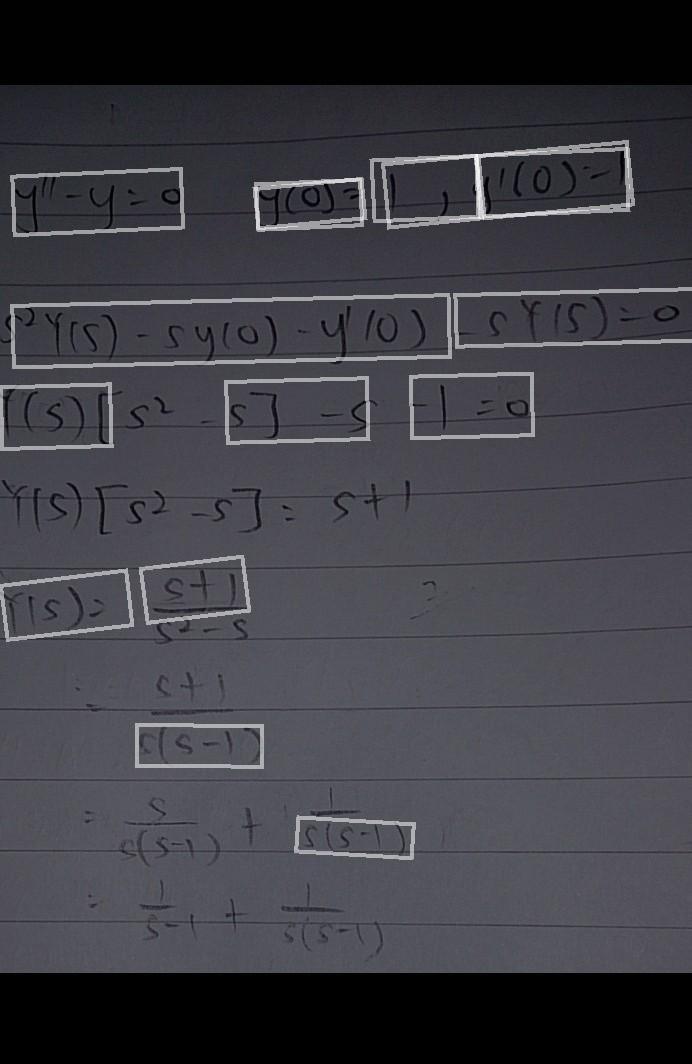 y'' - y = 0 y(0) = 1 , y'(0) = 1
s²Y(s) - sy(0) - y'(0) - sY(s) = 0
Y(s) [s² - s] - s - 1 = 0
Y(s) [s² - s] = s + 1
Y(s) = (s + 1)/(s² - s)
= (s + 1)/(s(s - 1))
= s/(s(s - 1)) + 1/(s(s - 1))
= 1/(s - 1) + 1/(s(s - 1))